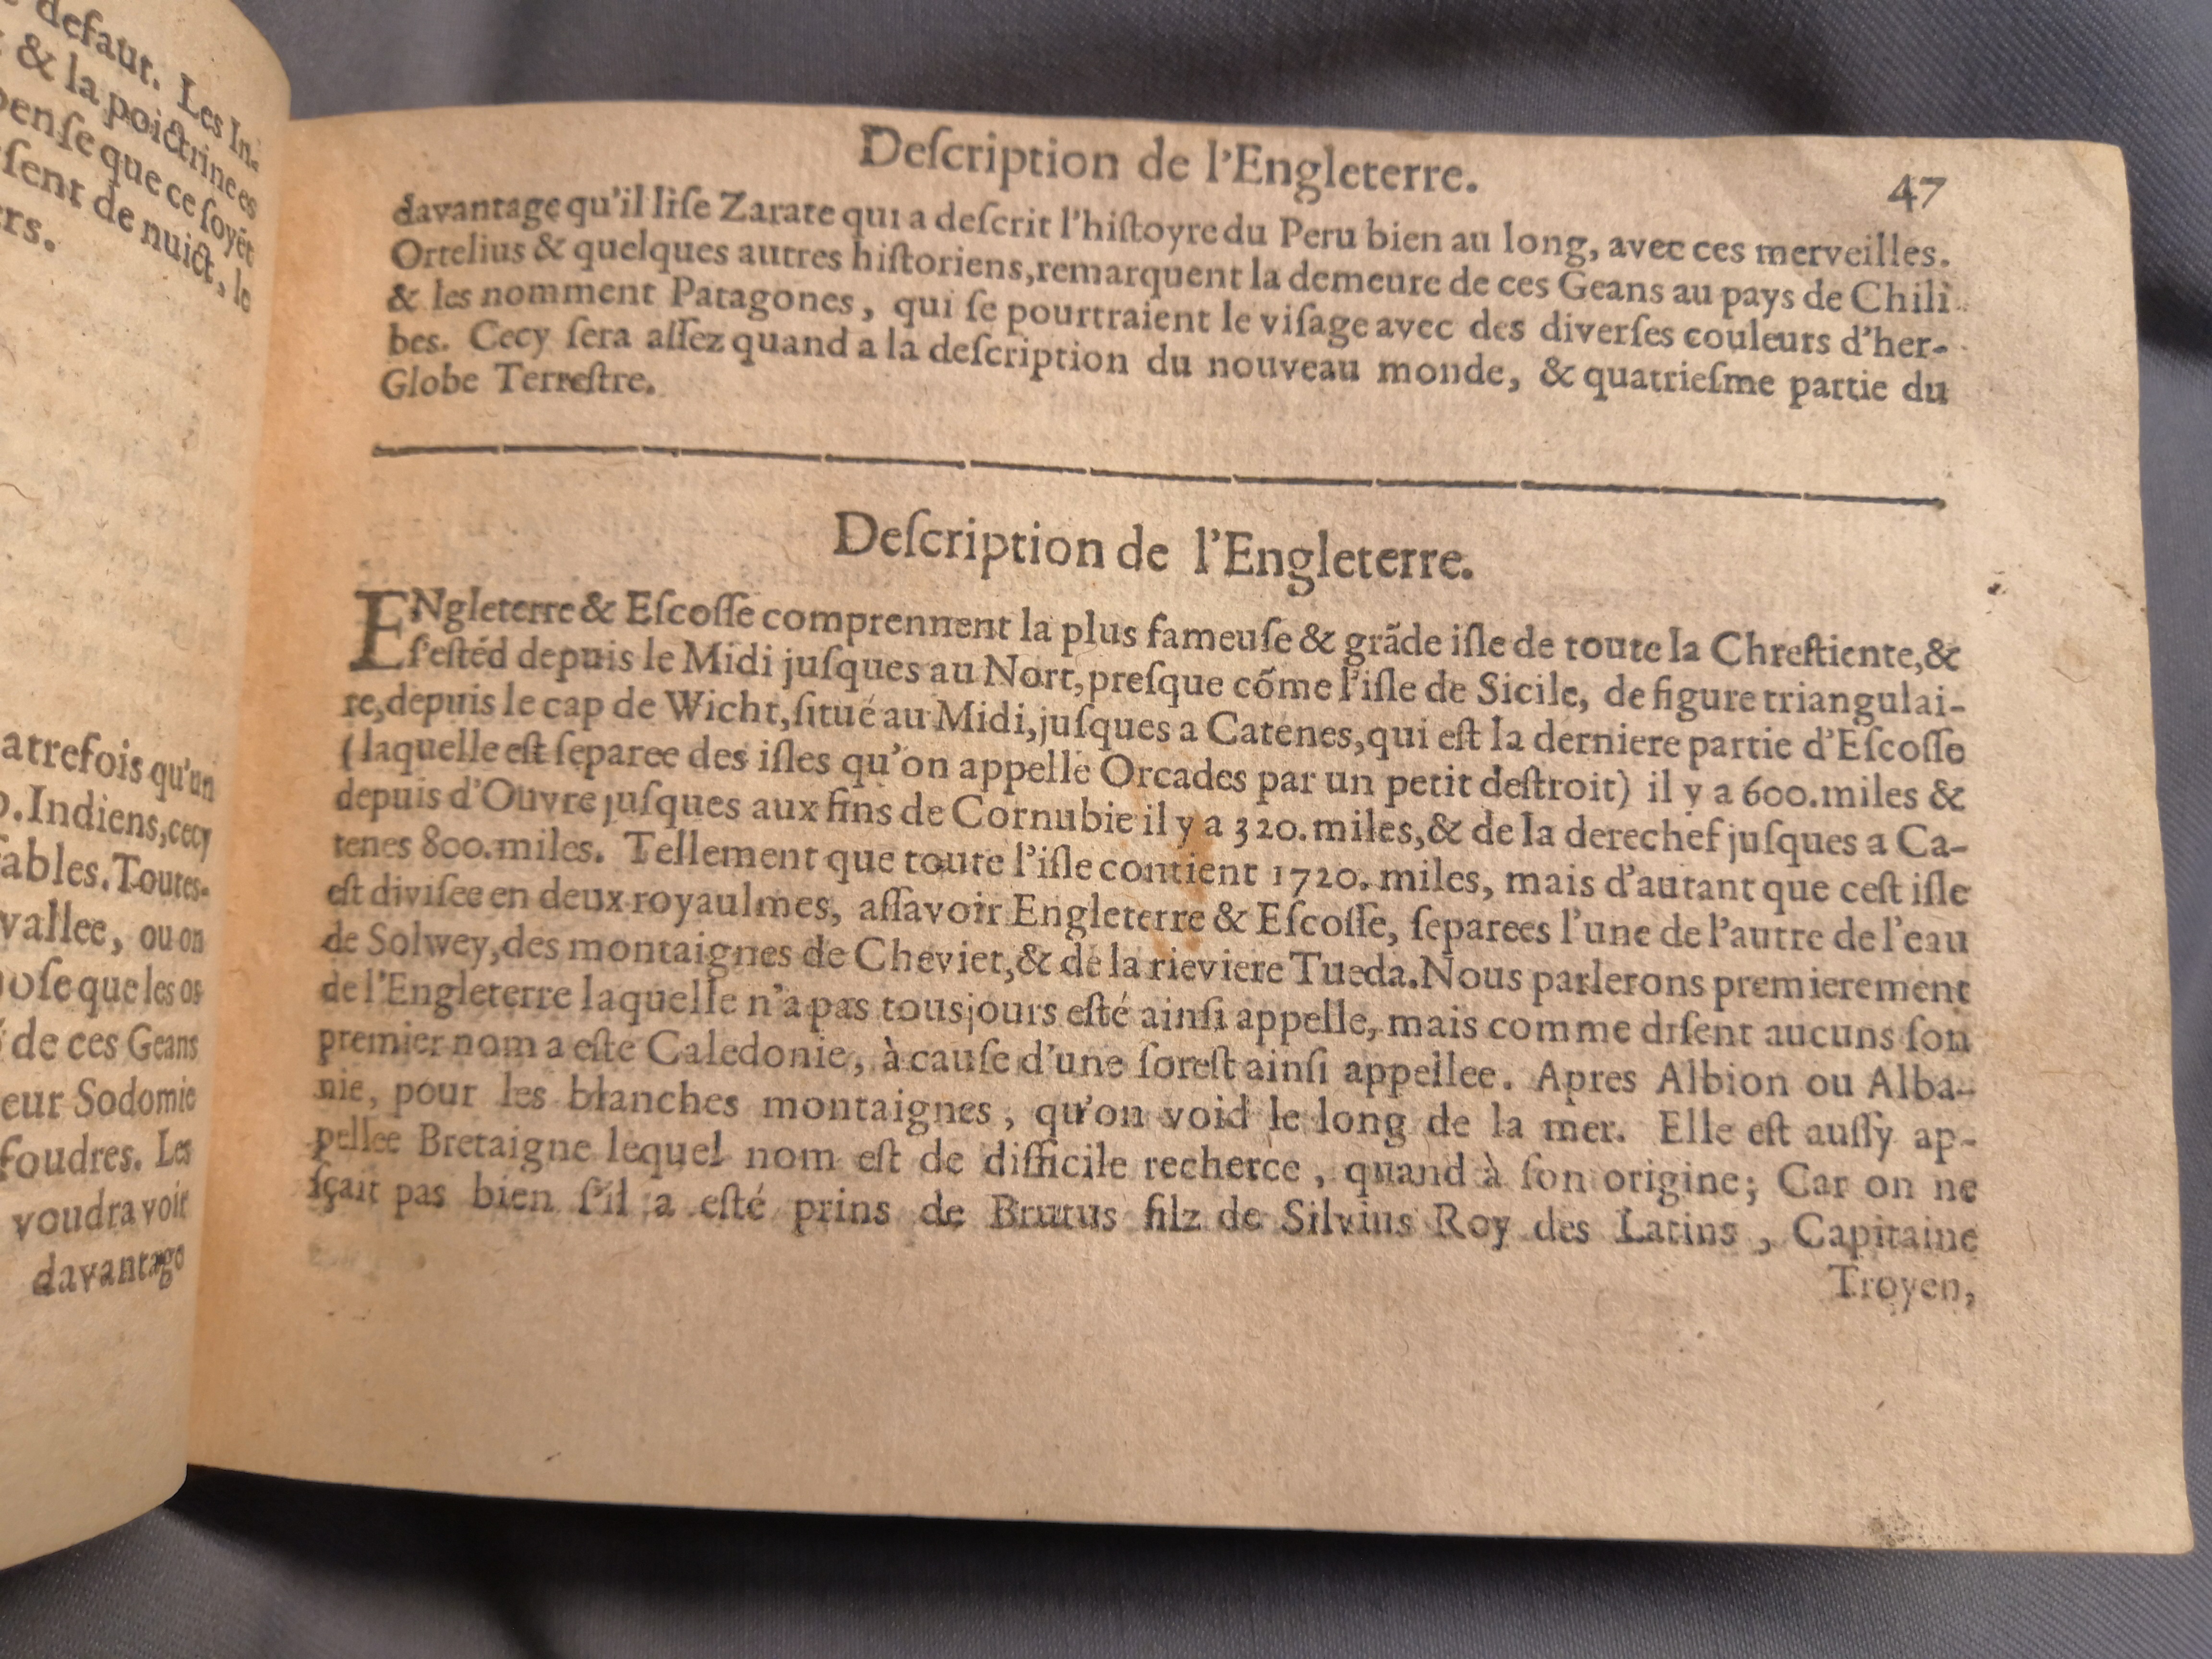 defaut. Les In-
& la poictrine es
pense que ce soyẽt
sent de nuict, le
ers.
atrefois qu'un
o. Indiens, cecy
ables. Toutes-
vallee, ou on
ose que les os
de ces Geans
eur Sodomie
foudres. Les
voudra voir
davantage
Deſcription de l'Engleterre.
47
davantage qu'il liſe Zarate qui a deſcrit l'hiſtoyre du Peru bien au long, avec ces merveilles.
Ortelius & quelques autres hiſtoriens, remarquent la demeure de ces Geans au pays de Chili
& les nomment Patagones, qui ſe pourtraient le viſage avec des diverſes couleurs d'her-
bes. Cecy ſera aſſez quand a la deſcription du nouveau monde, & quatrieſme partie du
Globe Terreſtre.
Deſcription de l'Engleterre.
ENgleterre & Eſcoſſe comprennent la plus fameuſe & grãde iſle de toute la Chreſtiente, &
ſ'eſtẽd depuis le Midi juſques au Nort, preſque cõme l'iſle de Sicile, de figure triangulai-
re, depuis le cap de Wicht, ſitué au Midi, juſques a Catenes, qui eſt la derniere partie d'Eſcoſſe
(laquelle eſt ſeparee des iſles qu'on appelle Orcades par un petit deſtroit) il y a 600. miles &
depuis d'Ouvre juſques aux fins de Cornubie il y a 320. miles, & de la derechef juſques a Ca-
tenes 800. miles. Tellement que toute l'iſle contient 1720. miles, mais d'autant que ceſt iſle
eſt diviſee en deux royaulmes, aſſavoir Engleterre & Eſcoſſe, ſeparees l'une de l'autre de l'eau
de Solwey, des montaignes de Cheviet, & de la rieviere Tueda. Nous parlerons premierement
de l'Engleterre laquelle n'a pas tousjours eſté ainſi appelle, mais comme diſent aucuns ſon
premier nom a eſte Caledonie, à cauſe d'une foreſt ainſi appellee. Apres Albion ou Alba-
nie, pour les blanches montaignes, qu'on void le long de la mer. Elle eſt auſſy ap-
pellee Bretaigne lequel nom eſt de difficile recherce, quand à ſon origine; Car on ne
ſçait pas bien ſ'il a eſté prins de Brutus filz de Silvius Roy des Latins, Capitaine
Troyen,